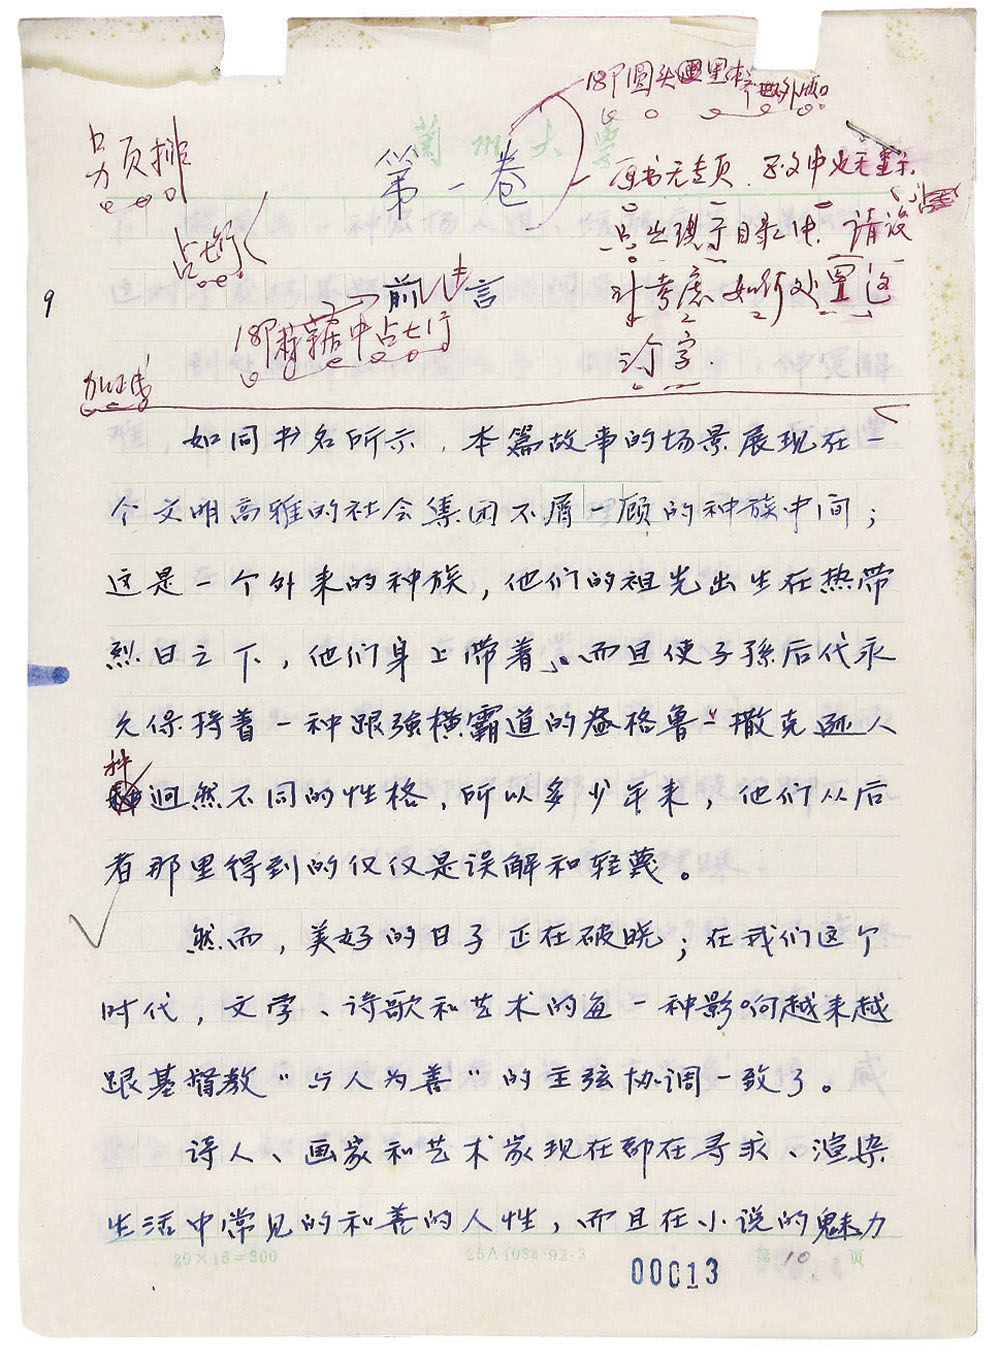 18P圆头黑体
兰州大学
另页排
第一卷
原书无专页，正文中也无显示，
只出现于目录中，请设
计考虑如何处置这
三个字.
占七行
9
前言
18P 居中占七行
加正线
如同书名所示，本篇故事的场景展现在一
个文明高雅的社会集团不屑一顾的种族中间；
这是一个外来的种族，他们的祖先出生在热带
烈日之下，他们身上带着、而且使子孫后代永
久保持着一种跟強横霸道的盎格鲁－撒克逊人
种迥然不同的性格，所以多少年来，他们从后
者那里得到的仅仅是误解和轻蔑。
然而，美好的日子正在破晓；在我们这个
时代，文学、诗歌和艺术的每一种影响越来越
跟基督教“与人为善”的主弦协调一致了。
诗人、画家和艺术家现在都在寻求、渲染
生活中常见的和善的人性，而且在小说的魅力
20×15=300 25A1034·92·3 第 10 页
00013